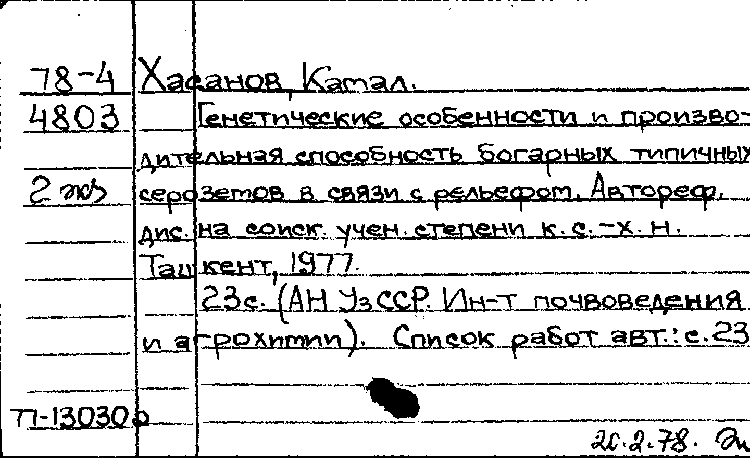 78-4 Хасанов, Камал.
4803 Генетические особенности и произво-
дительная способность богарных типичных
2 экз сероземов в связи с рельефом. Автореф.
дис. на соиск. учен. степени к.с.-х.н.
Ташкент, 1977.
23с. (АН УзССР. Ин-т почвоведения
и агрохимии). Список работ авт.: с.23
П-13030
20.2.78.